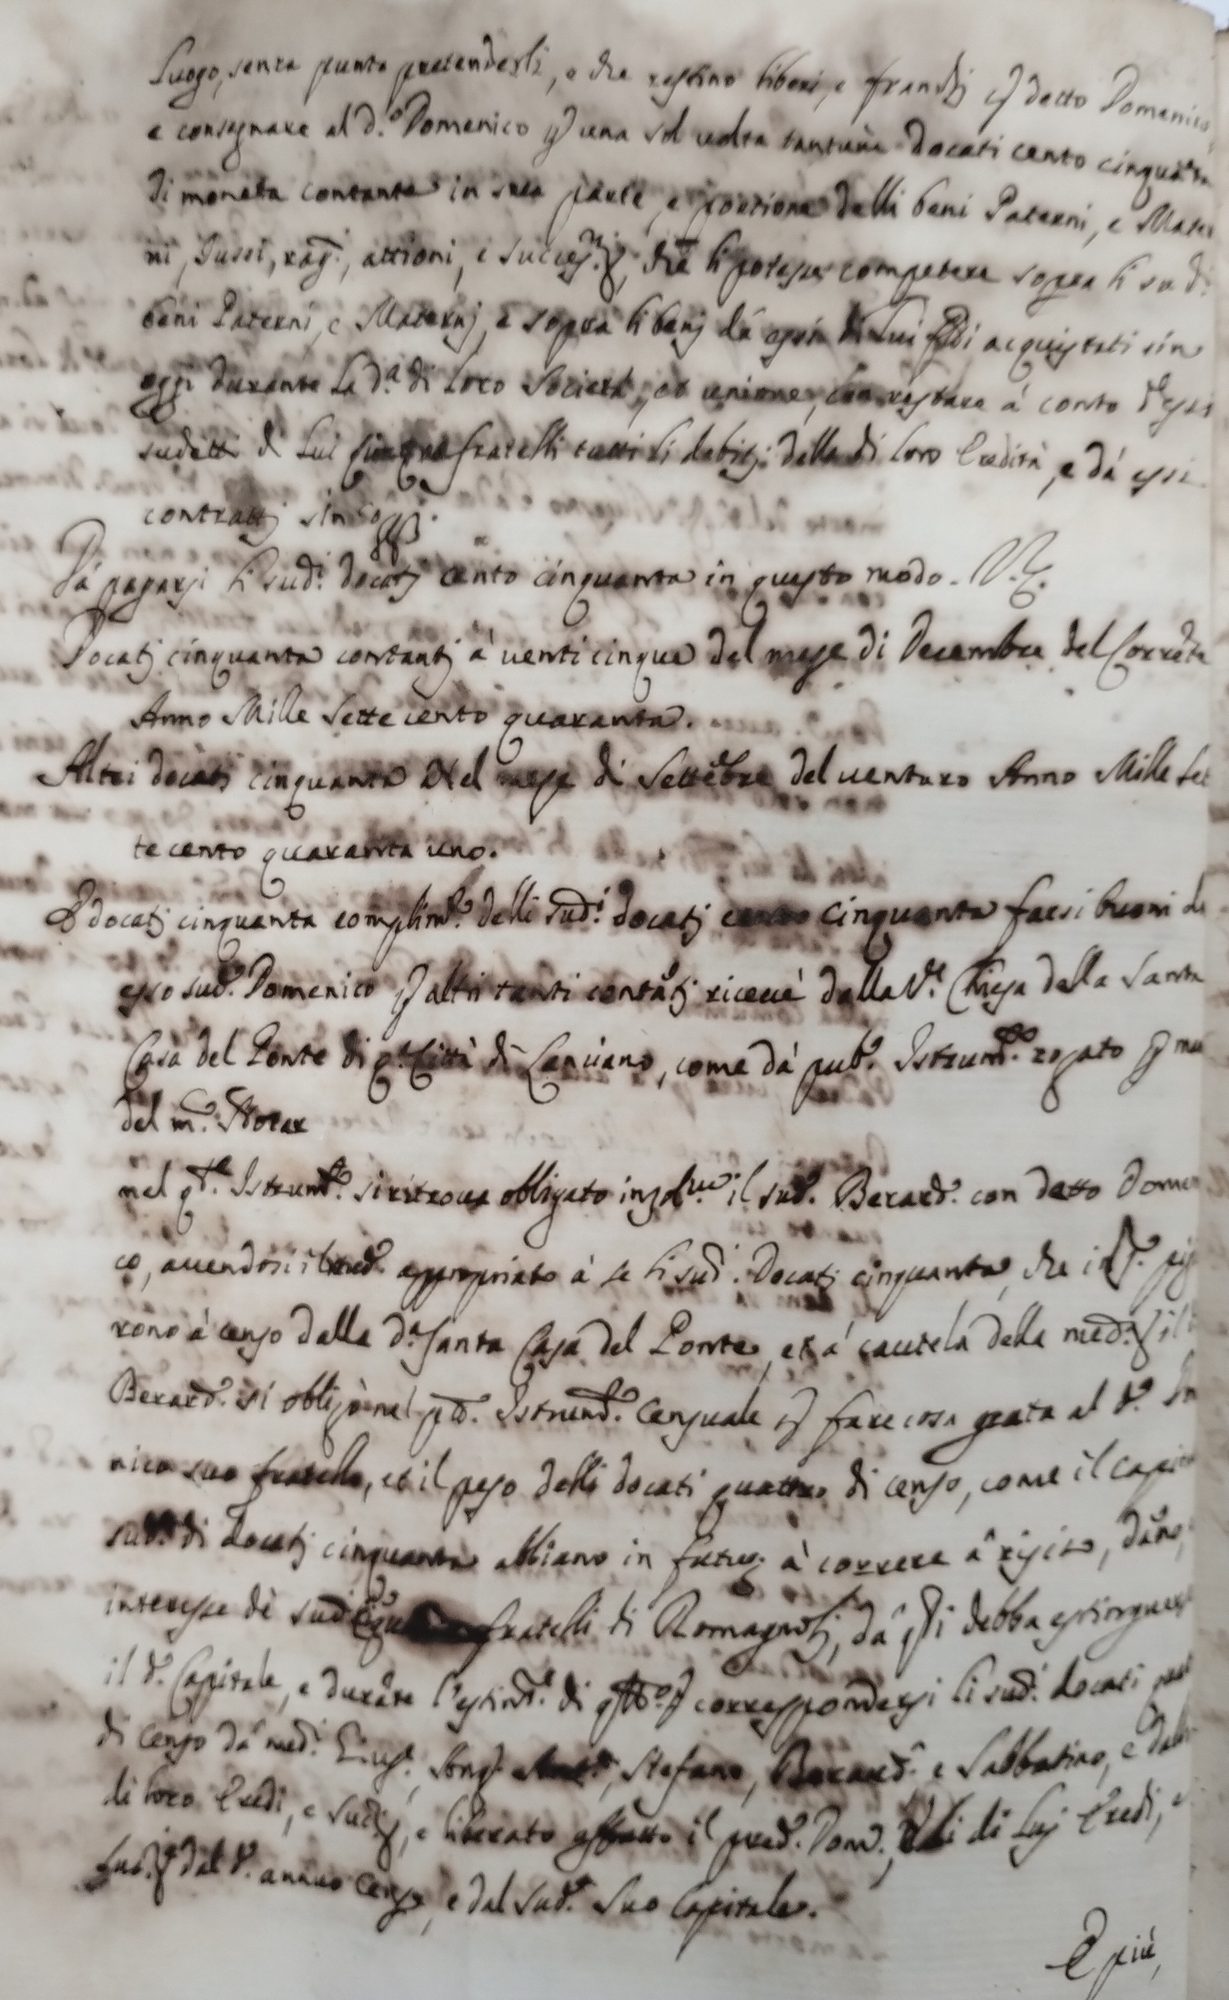 Luogo, senza punto pretenderli, e che restino liberi, e franchi p detto Domenico,
e consegnare al d.º Domenico p una sol volta tantum Docati cento cinquãta
di moneta contante in sua parte, e portione delli beni Paterni, e Mater
ni, Jussi, rag.ⁱ, attioni, e success.ⁿⁱ, che li potesse competere sopra li sud.ⁱ
beni Paterni, e Materni, e sopra li beni dá essi di Lui acquistati sin
oggi durante la d.ª di loro Società, et unione, con restare á conto d'essi
sudetti di Lui fratelli tutti li debiti della di loro Eredità, e dá essi
contratti sin oggi.
Dá pagarsi li sud.ⁱ docatj cento cinquanta in questo modo. V.Z.
Docatj cinquanta contantj á venticinque del mese di Decembre del Corrẽte
Anno Mille Sette cento quaranta.
Altri docatj cinquanta Nel mese di Settẽbre del venturo Anno Mille Set
te cento quaranta uno.
E docatj cinquanta complim.º delli sud.ⁱ docatj cento cinquanta farsi buoni da
esso sud.º Domenico p altri tanti contãtj ricevé dalla V.ᵉ Chiesa della Santa
Casa del Ponte di q.ᵗᵃ Città di Lanciano, come dá pub.º Istrum.ᵗᵒ rogato p man
del m.º Notar
nel q.ˡᵉ Istrum.ᵗᵒ si ritrova obligato insol.ᵘᵐ il sud.º Berard.º con detto Domeni
co, avendosi il med.º appropriato á se li sud.ⁱ Docatj cinquanta, che pig
rono á censo dalla d.ª Santa Casa del Ponte, et á cautela della med.ª il
Berard.º si obligò nel pd.º Istrum.ᵗᵒ Censuale p fare cosa grata al d.º Do
nico suo fratello, et il peso delli docati quattro di censo, come il capita
sud.º di Docatj cinquanta abbiano in futur. á correre á risico, dãno,
interesse de sud.ⁱ fratelli di Romagnolj, dá debba estinguersi
il d.º Capitale, e durãte l'estint.ᵉ di corrispondersi li sud.ⁱ docati quat
di censo dá med.ⁱ Stefano, Berard.º e Sabbatino, e dalli
di loro Eredi, e liberato affatto il pred.º Dom.º, di Luj Eredi, e
dal d.º annuo censo, e dal sud.º suo Capitale.
E più,